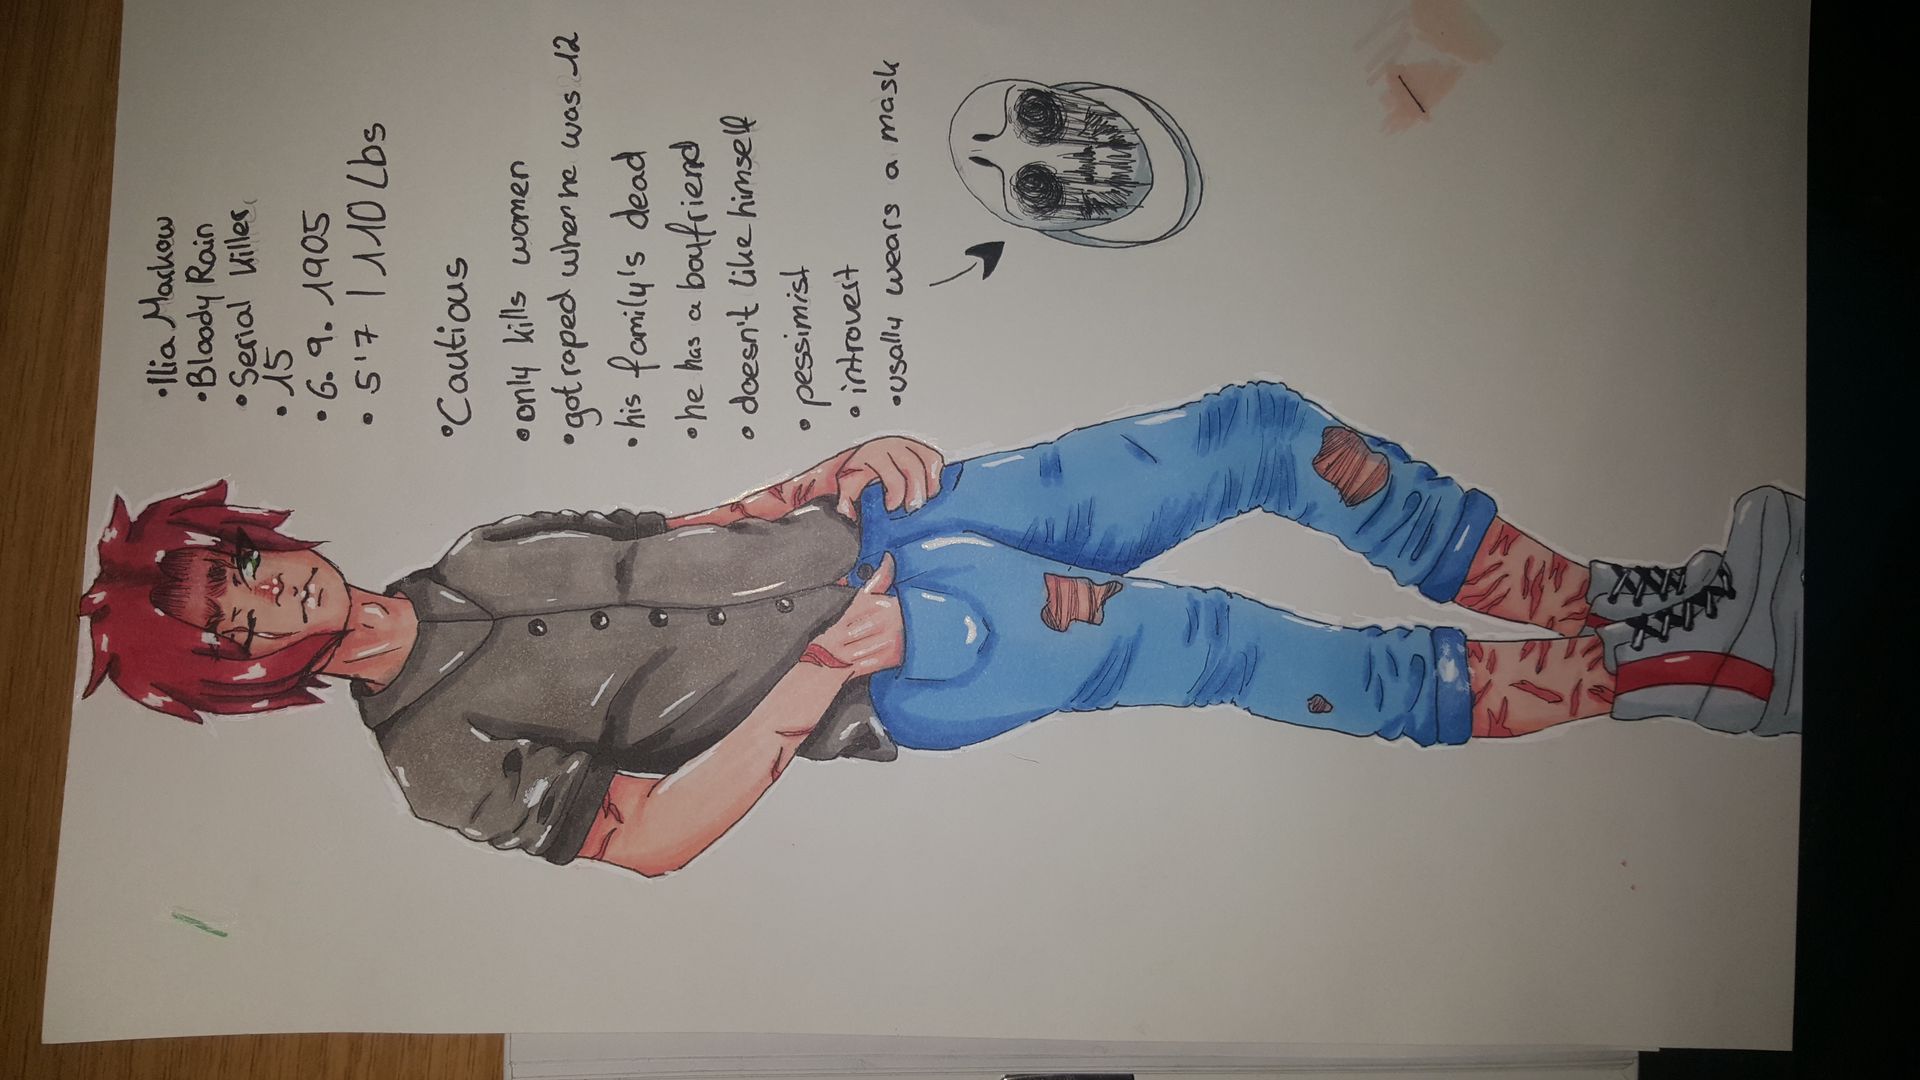 •Ilia Markow
•Bloody Rain
•Serial killer
•15
•6. 9. 1905
•5'7 | 110 Lbs
•Cautious
•only kills women
•got raped when he was 12
•his family's dead
•he has a boyfriend
•doesn't like himself
•pessimist
•introvert
•usally wears a mask